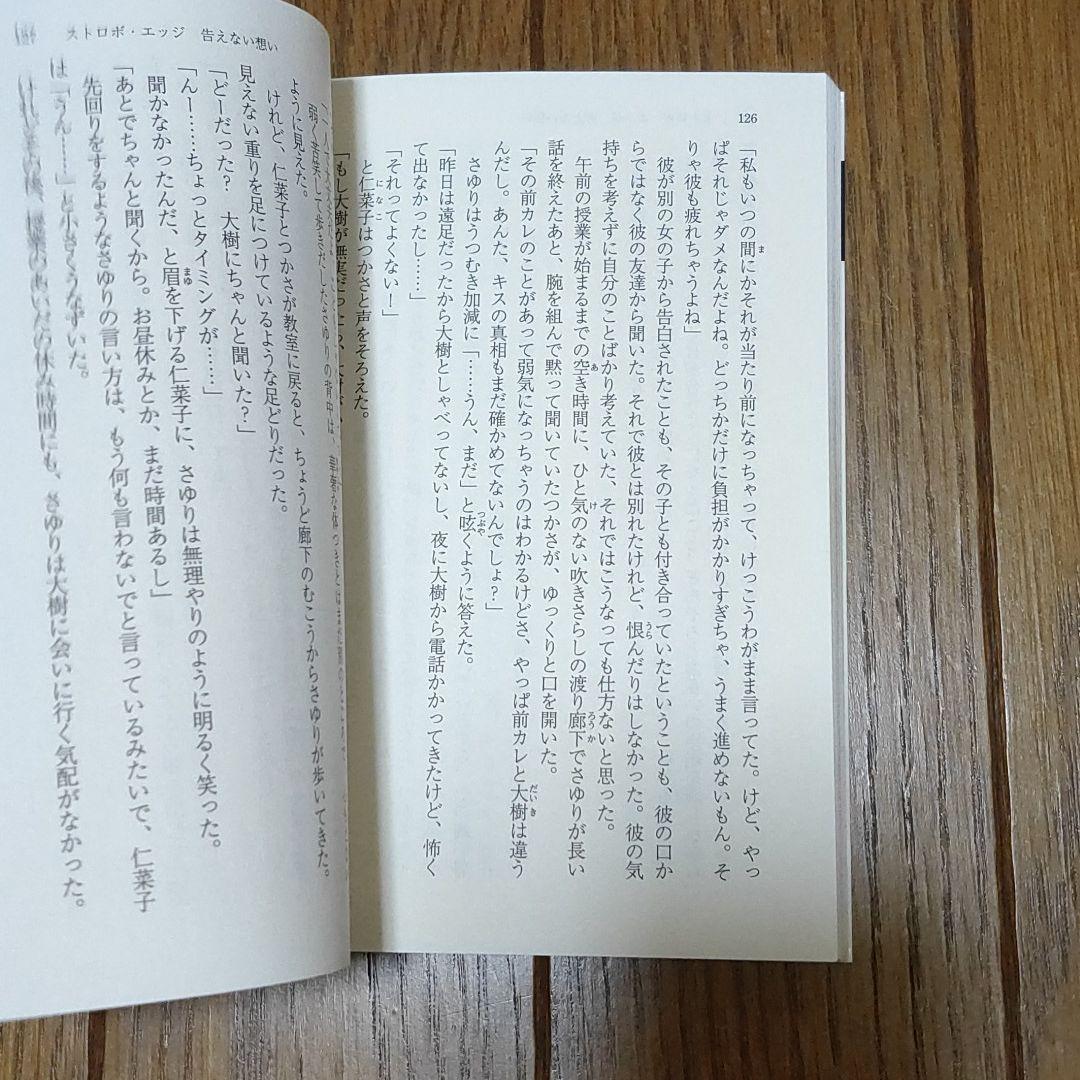 126
「私もいつの間にかそれが当たり前になっちゃって、けっこうわがまま言ってた。けど、やっ
ぱそれじゃダメなんだよね。どっちかだけに負担がかかりすぎちゃ、うまく進めないもん。そ
りゃ彼も疲れちゃうよね」
彼が別の女の子から告白されたことも、その子とも付き合っていたということも、彼の口か
らではなく彼の友達から聞いた。それで彼とは別れたけれど、恨んだりはしなかった。彼の気
持ちを考えずに自分のことばかり考えていた、それではこうなっても仕方ないと思った。
午前の授業が始まるまでの空き時間に、ひと気のない吹きさらしの渡り廊下でさゆりが長い
話を終えたあと、腕を組んで黙って聞いていたつかさが、ゆっくりと口を開いた。
「その前カレのことがあって弱気になっちゃうのはわかるけどさ、やっぱ前カレと大樹は違う
んだし。あんた、キスの真相もまだ確かめてないんでしょ？」
さゆりはうつむき加減に「……うん、まだ」と呟くように答えた。
「昨日は遠足だったから大樹としゃべってないし、夜に大樹から電話かかってきたけど、怖く
て出なかったし……」
「それってよくない！」
と仁菜子はつかさと声をそろえた。
「もし大樹が無実だ
ストロボ・エッジ 告えない想い
弱く苦笑して歩きだしたさゆりの背中は、華奢な体つきとは
ように見えた。
けれど、仁菜子とつかさが教室に戻ると、ちょうど廊下のむこうからさゆりが歩いてきた。
見えない重りを足につけているような足どりだった。
「どーだった？ 大樹にちゃんと聞いた？」
「んー……ちょっとタイミングが……」
聞かなかったんだ、と眉を下げる仁菜子に、さゆりは無理やりのように明るく笑った。
「あとでちゃんと聞くから。お昼休みとか、まだ時間あるし」
先回りをするようなさゆりの言い方は、もう何も言わないでと言っているみたいで、仁菜子
は「うん……」と小さくうなずいた。
休み時間にも、さゆりは大樹に会いに行く気配がなかった。